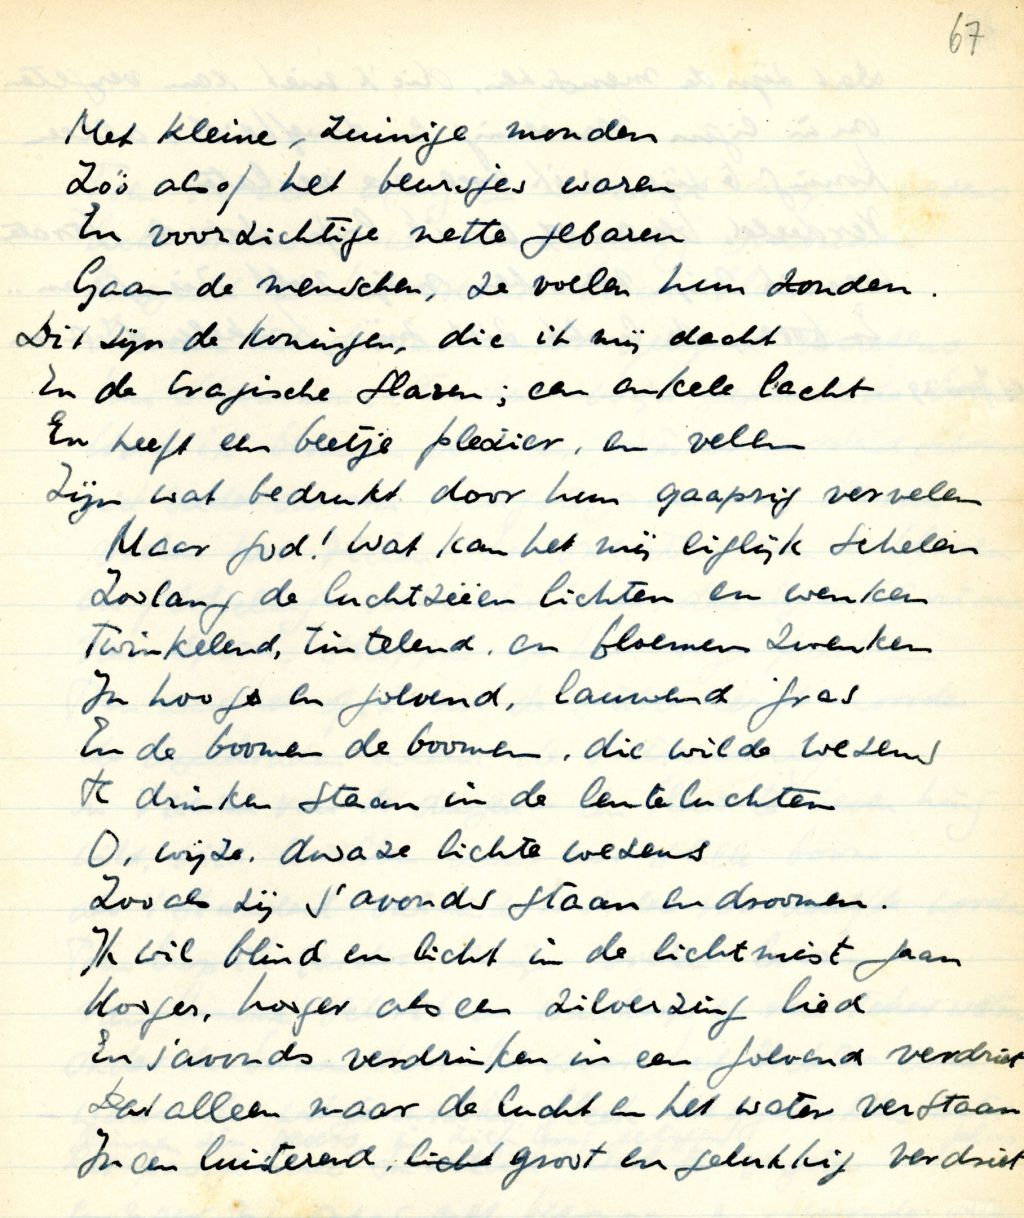 67
Met kleine, zuinige monden
Zóó alsof het beursjes waren
En voorzichtige nette gebaren
Gaan de menschen, ze voelen hun zonden.
Dit zijn de koningen, die ik mij dacht
En de tragische slaven; een enkele lacht
En heeft een beetje plezier, en velen
Zijn wat bedrukt door hun gaaprig vervelen
Maar god! wat kan het mij eiglijk schelen
Zoolang de luchtzeëen lichten en wenken
Twinkelend, tintelend, en bloemen zwenken
In hoog en golvend, lauwend gras
En de boomen de boomen, die wilde wezens
Te drinken staan in de lenteluchten
O, wijze, dwaze lichte wezens
Zooals zij s'avonds staan en droomen.
Ik wil blind en licht in de lichtmist gaan
Hooger, hooger als een zilverzing lied
En s'avonds verdrinken in een golvend verdriet
Dat alleen maar de lucht en het water verstaan
In een luisterend, licht groot en gelukkig verdriet